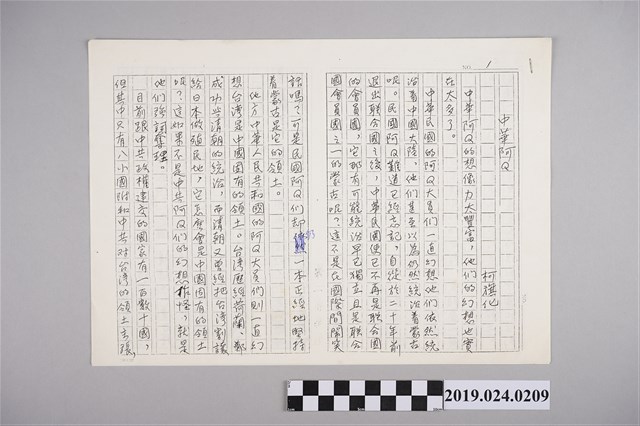 NO. 1
中華阿Q
柯旗化
中華阿Q的想像力太豐富，他們的幻想也實
在太多了。
中華民國的阿Q大員們一直幻想他們依然統
治着中國大陸，他們甚至以為仍然統治着蒙古
呢。民國阿Q難道已經忘記，自從於二十年前
退出聯合國之後，中華民國便已不再是聯合國
的會員國，它那有可能統治早已獨立且是聯合
國會員國之一的蒙古呢？這不是在國際間鬧笑
話嗎？可是民國阿Q們却仍一本正經地堅持
着蒙古是它的領土。
他方，中華人民共和國的阿Q大員們則一直幻
想台灣是中國固有的領土。台灣歷經荷蘭、鄭
成功與清朝的統治，而清朝又曾經把台灣割讓
給日本做殖民地，它怎麼會是中國固有的領土
呢？這如果不是中共阿Q們的幻想作怪，就是
他們強詞奪理。
目前跟中共政權建交的國家有一百數十國，
但其中只有八小國附和中共對台灣的領土主張
2019.024.0209